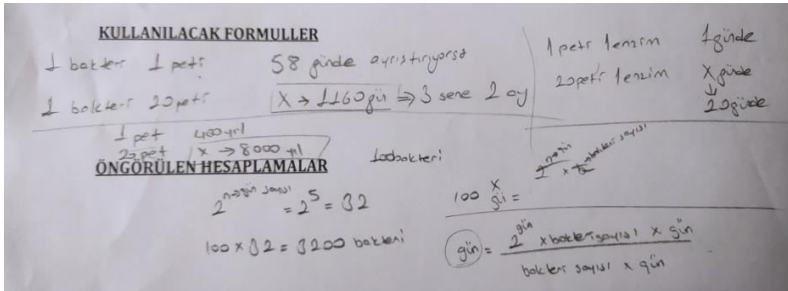 KULLANILACAK FORMULLER
1 bakteri 1 peti 58 günde ayrıştırıyorsa
1 bakteri 20 peti X → 1160 gü ⇒ 3 sene 2 ay
1 peti 1 enzim 1 günde
20 peti 1 enzim X günde
↓
20 günde
1 pet 400 yıl
20 pet X → 8000 yıl
ÖNGÖRÜLEN HESAPLAMALAR
100 bakteri
2^n→gün sayısı = 2^5 = 32
100 x 32 = 3200 bakteri
100 X
gü = 2^n→gün x bakteri sayısı
gün = 2^gün x bakteri sayısı x gün
bakteri sayısı x gün